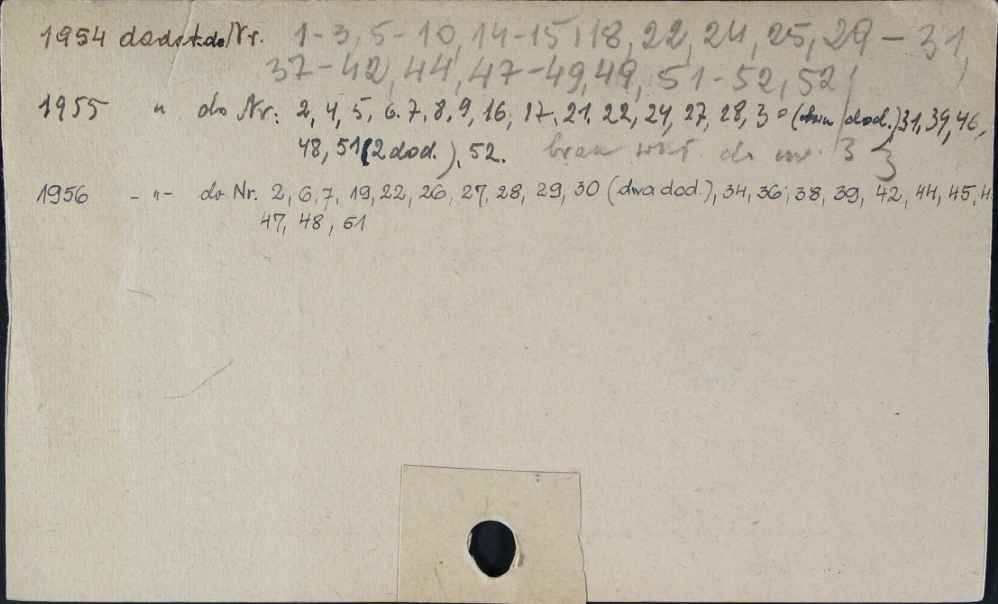 1954 dodat. do Nr. 1-3, 5-10, 14-15, 18, 22, 24, 25, 29-31,
37-42, 44, 47-49, 49, 51-52, 52
1955 " do Nr: 2, 4, 5, 6. 7, 8, 9, 16, 17, 21, 22, 24, 27, 28, 30 (dwa dod.) 31, 39, 46,
48, 51 (2 dod.), 52. brak do nr. 3
1956 - " - do Nr. 2, 6, 7, 19, 22, 26, 27, 28, 29, 30 (dwa dod.), 34, 36, 38, 39, 42, 44, 45,
47, 48, 51